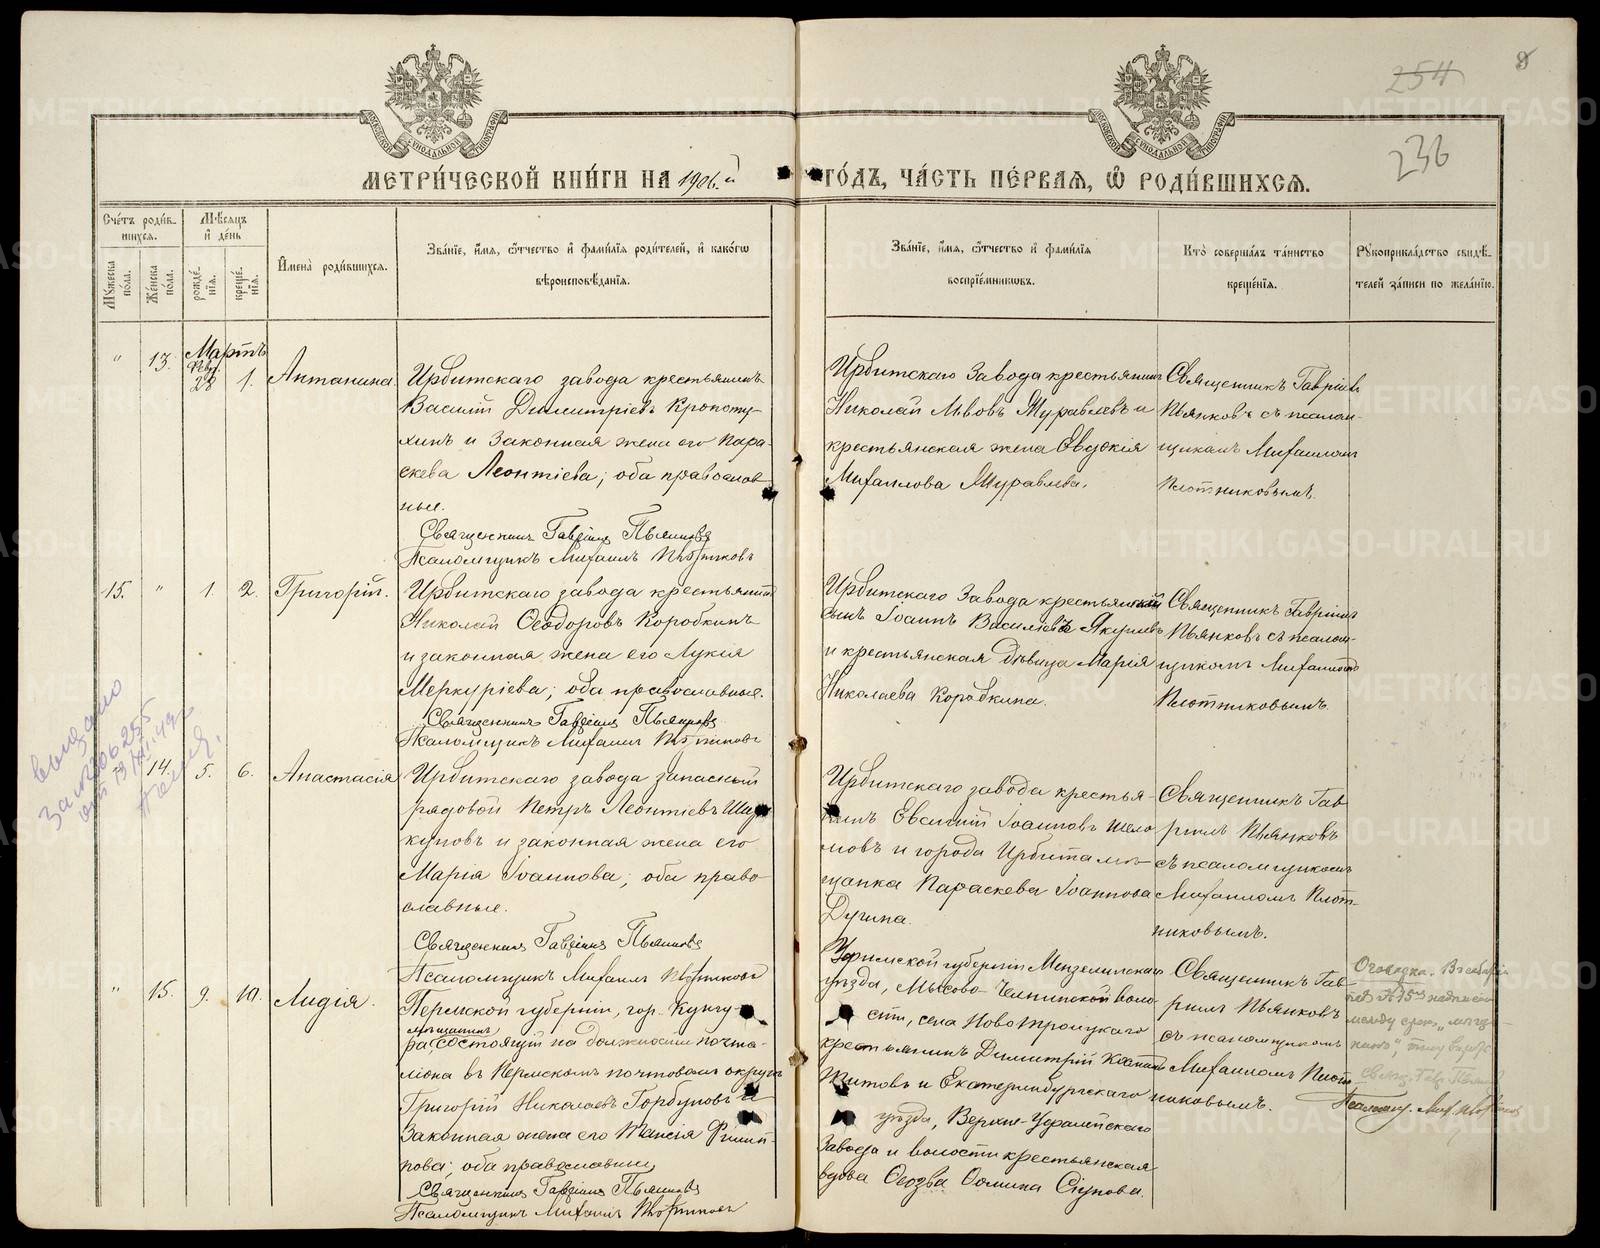 254
8
236
МЕТРИ́ЧЕСКОЙ КНИ́ГИ НА 1906.й ГО́ДЪ, ЧА́СТЬ ПЕ́РВАЯ, Ѿ РОДИ́ВШИХСЯ.
Сче́тъ роди́в-
шихся.
Мѣ́сяцъ
и де́нь
Му́жеска по́ла.
Же́нска по́ла.
рожде́нія.
креще́нія.
Имена̀ роди́вшихся.
Зва́ніе, и́мя, ѻ́тчество и фами́лія роди́телей, и како́гѡ
вѣроисповѣ́данія.
Зва́ніе, и́мя, ѻ́тчество и фами́лія
воспріе́мниковъ.
Кто̀ соверша́лъ та́инство
креще́нія.
Рукоприкла́дство свидѣ́-
телей за́писи по жела́нію.
Мартъ
" 13. 28 1. Антанина.
Ирбитскаго завода крестьянинъ
Василій Димитріевъ Кропоту-
хинъ и законная жена его Пара-
скева Леонтіева; оба православ
ные.
Священникъ Гавріилъ Пьянковъ
Псаломщикъ Михаилъ Плотниковъ
Ирбитскаго Завода крестьянинъ
Николай Львовъ Муравлевъ и
крестьянская жена Евдокія
Михаилова Муравлева.
Священникъ Гавріилъ
Пьянковъ съ псалом-
щикомъ Михаиломъ
Плотниковымъ.
15. " 1. 2. Григорій.
Ирбитскаго завода крестьянинъ
Николай Ѳеодоровъ Коробкинъ
и законная жена его Лукія
Меркуріева; оба православные.
Священникъ Гавріилъ Пьянковъ
Псаломщикъ Михаилъ Плотниковъ
Ирбитскаго Завода крестьянскій
сынъ Іоаннъ Василіевъ Якушевъ
и крестьянская дѣвица Марія
Николаева Коробкина.
Священникъ Гавріилъ
Пьянковъ съ псалом-
щикомъ Михаиломъ
Плотниковымъ.
выдано
" 14. 5. 6. Анастасія
Ирбитскаго завода запасный
рядовой Петръ Леонтіевъ
куновъ и законная жена его
Марія Іоаннова; оба право-
славные.
Священникъ Гавріилъ Пьянковъ
Псаломщикъ Михаилъ Плотниковъ
Ирбитскаго завода крестья-
нинъ Евсевій Іоанновъ Шело
мовъ и города Ирбита мѣ-
щанка Параскева Іоаннова
Дугина.
Священникъ Гав
ріилъ Пьянковъ
съ псаломщикомъ
Михаиломъ Плот-
никовымъ.
" 15. 9. 10. Лидія.
Пермской губерніи, гор. Кунгу-
мѣщанинъ
ра, состоящій на должности почта-
ліона въ Пермскомъ почтовомъ округѣ
Григорій Николаевъ Горбуновъ и
Законная жена его Таисія Филип-
пова; оба православные
Священникъ Гавріилъ Пьянковъ
Псаломщикъ Михаилъ Плотниковъ
Уфимской губерніи Мензелинскаго
уѣзда, Мысово-Челнинской воло-
сти, села Ново Троицкаго
крестьянинъ Димитрій
Житовъ и Екатеринбургскаго
уѣзда, Верхне-Уфалейскаго
Завода и волости крестьянская
вдова Ѳеозва Ѳомина Сіунова.
Священникъ Гав-
ріилъ Пьянковъ
съ псаломщикомъ
Михаиломъ Плот-
никовымъ.
METRIKI.GASO-URAL.RU